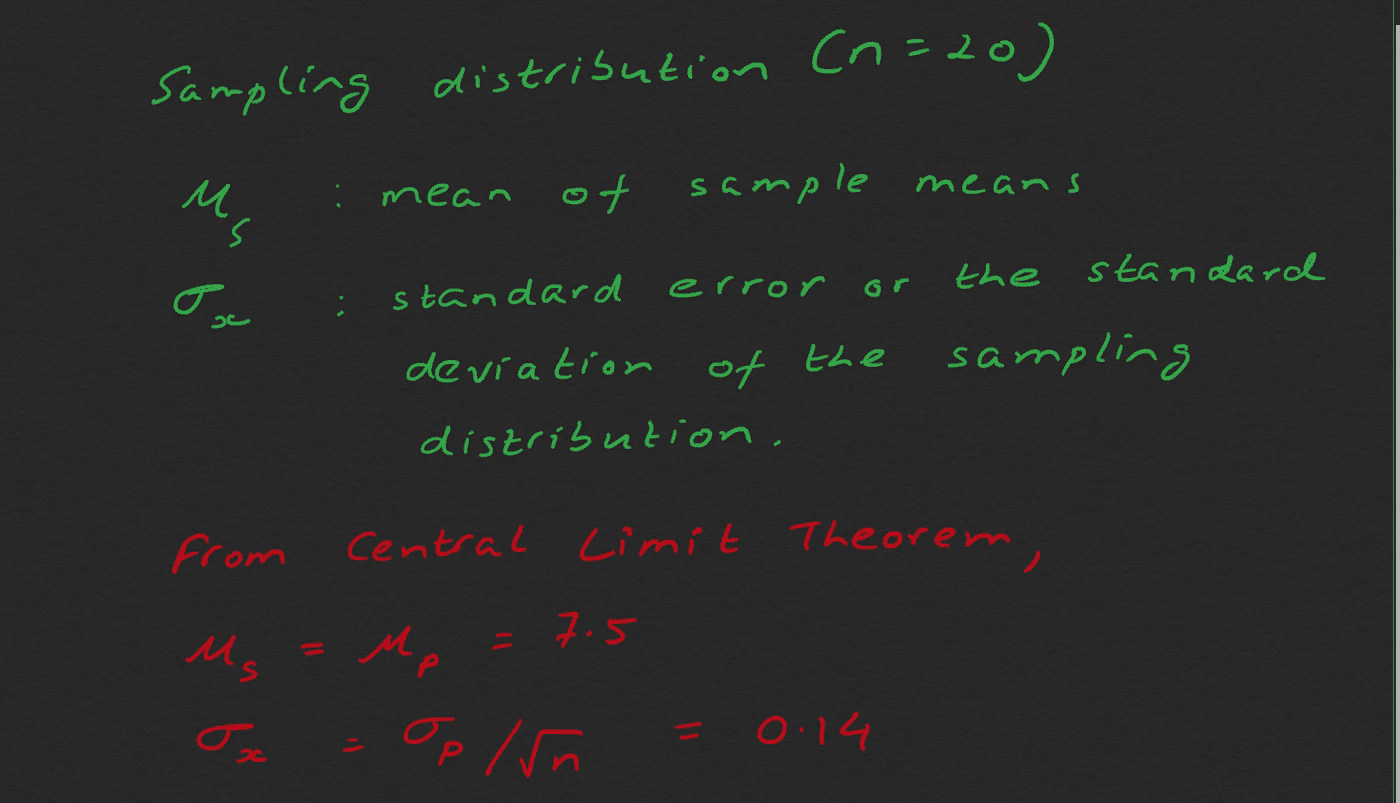 Sampling distribution (n = 20)
μₛ : mean of sample means
σₓ : standard error or the standard
deviation of the sampling
distribution.
From Central Limit Theorem,
μₛ = μₚ = 7.5
σₓ = σₚ/√n = 0.14